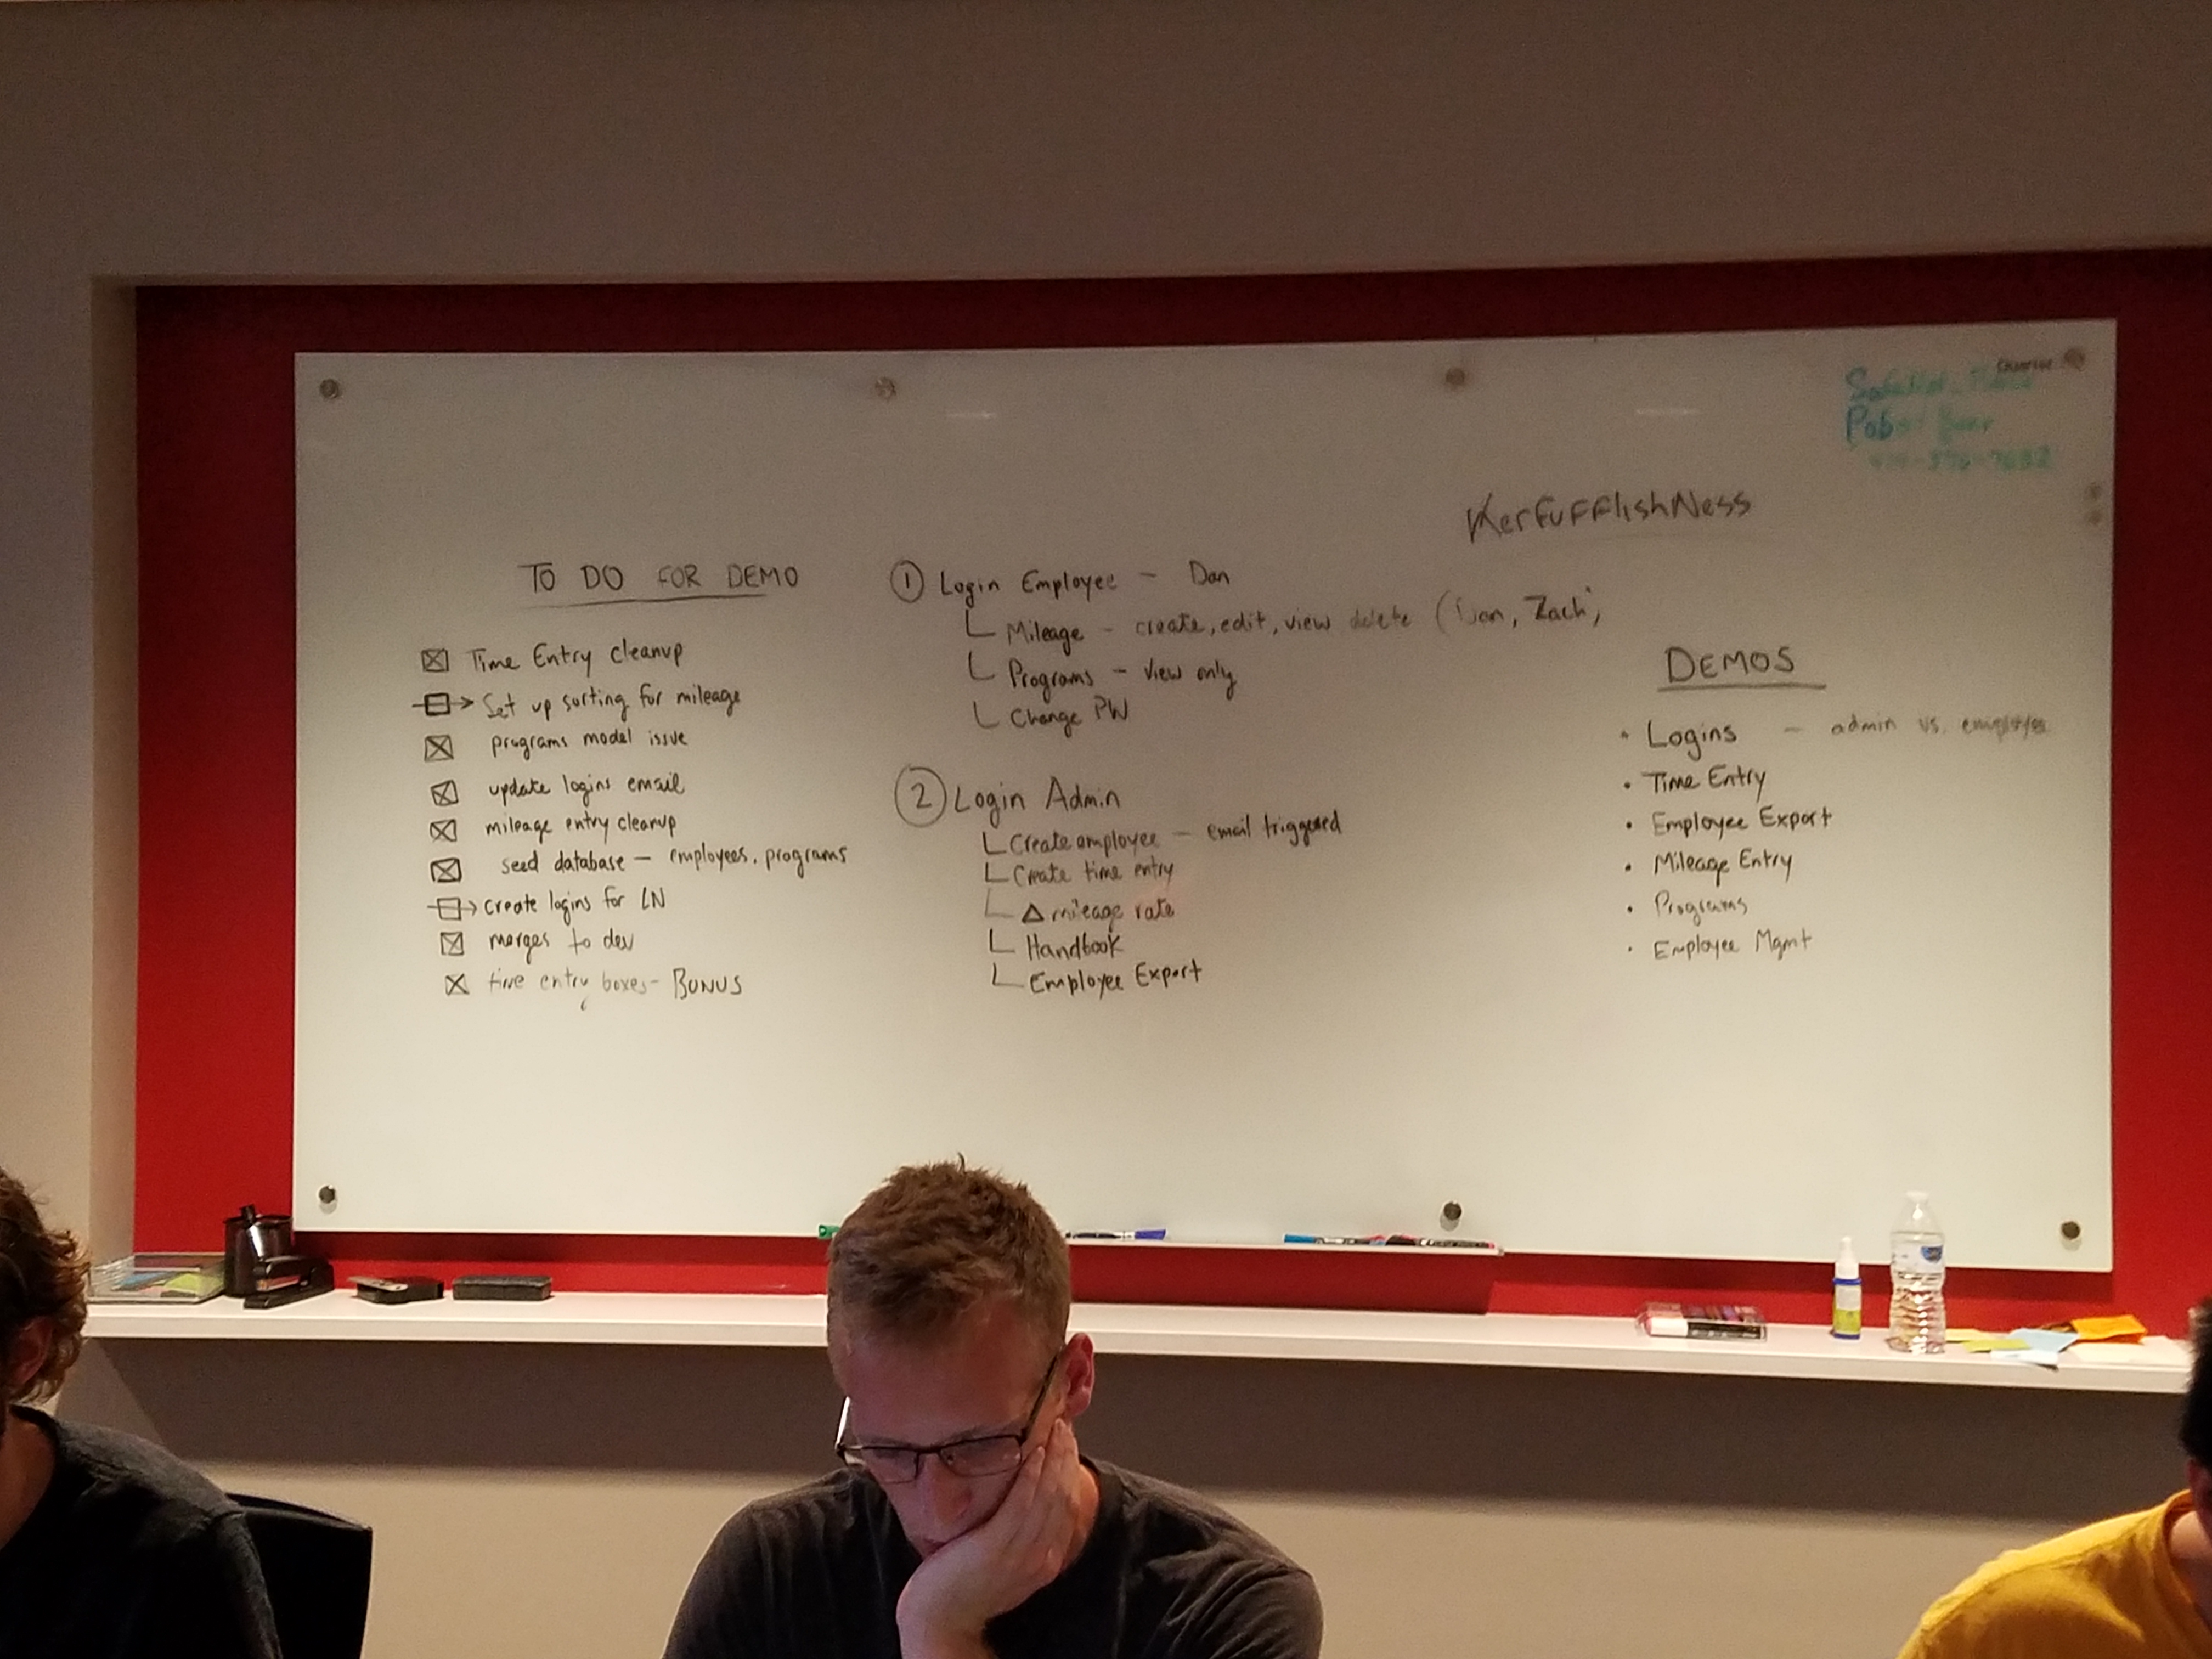 TO DO FOR DEMO
Time Entry cleanup
Set up sorting for mileage
programs model issue
update logins email
mileage entry cleanup
seed database — employees, programs
create logins for LN
merges to dev
time entry boxes - BONUS
① Login Employee — Dan
Mileage - create, edit, view delete (Dan, Zach,
Programs - view only
Change PW
② Login Admin
Create employee — email triggered
Create time entry
Δ mileage rate
Handbook
Employee Export
KerfufflishNess
DEMOS
• Logins — admin vs. employee
• Time Entry
• Employee Export
• Mileage Entry
• Programs
• Employee Mgmt